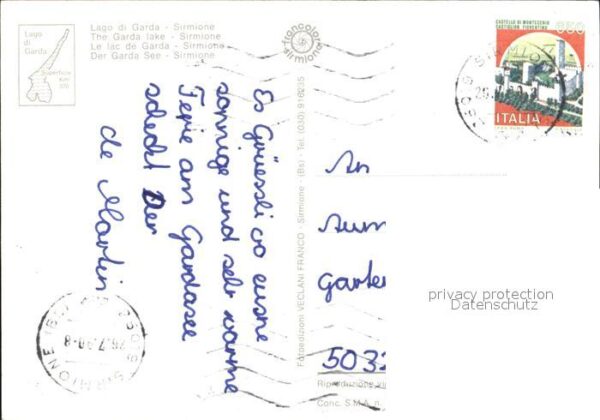 Lago
di
Garda
Superficie
Km²
370
Lago di Garda - Sirmione
The Garda lake - Sirmione
Le lac de Garda - Sirmione
Der Garda See - Sirmione
francolor
sirmione
CASTELLO DI MONTECCHIO
CASTIGLION FIORENTINO
650
ITALIA
Es Grüessli vo eusne
sonnige und sehr warme
Ferie am Gardasee
scheckt Der
de Martin
Fotoedizioni VECLANI FRANCO - Sirmione - (Bs) - Tel. (030) 916235
An
garte
5032
privacy protection
Datenschutz
Riproduzione
Conc. S.M.A. n.
25019 SIRMIONE (BS)
26.7.90-8